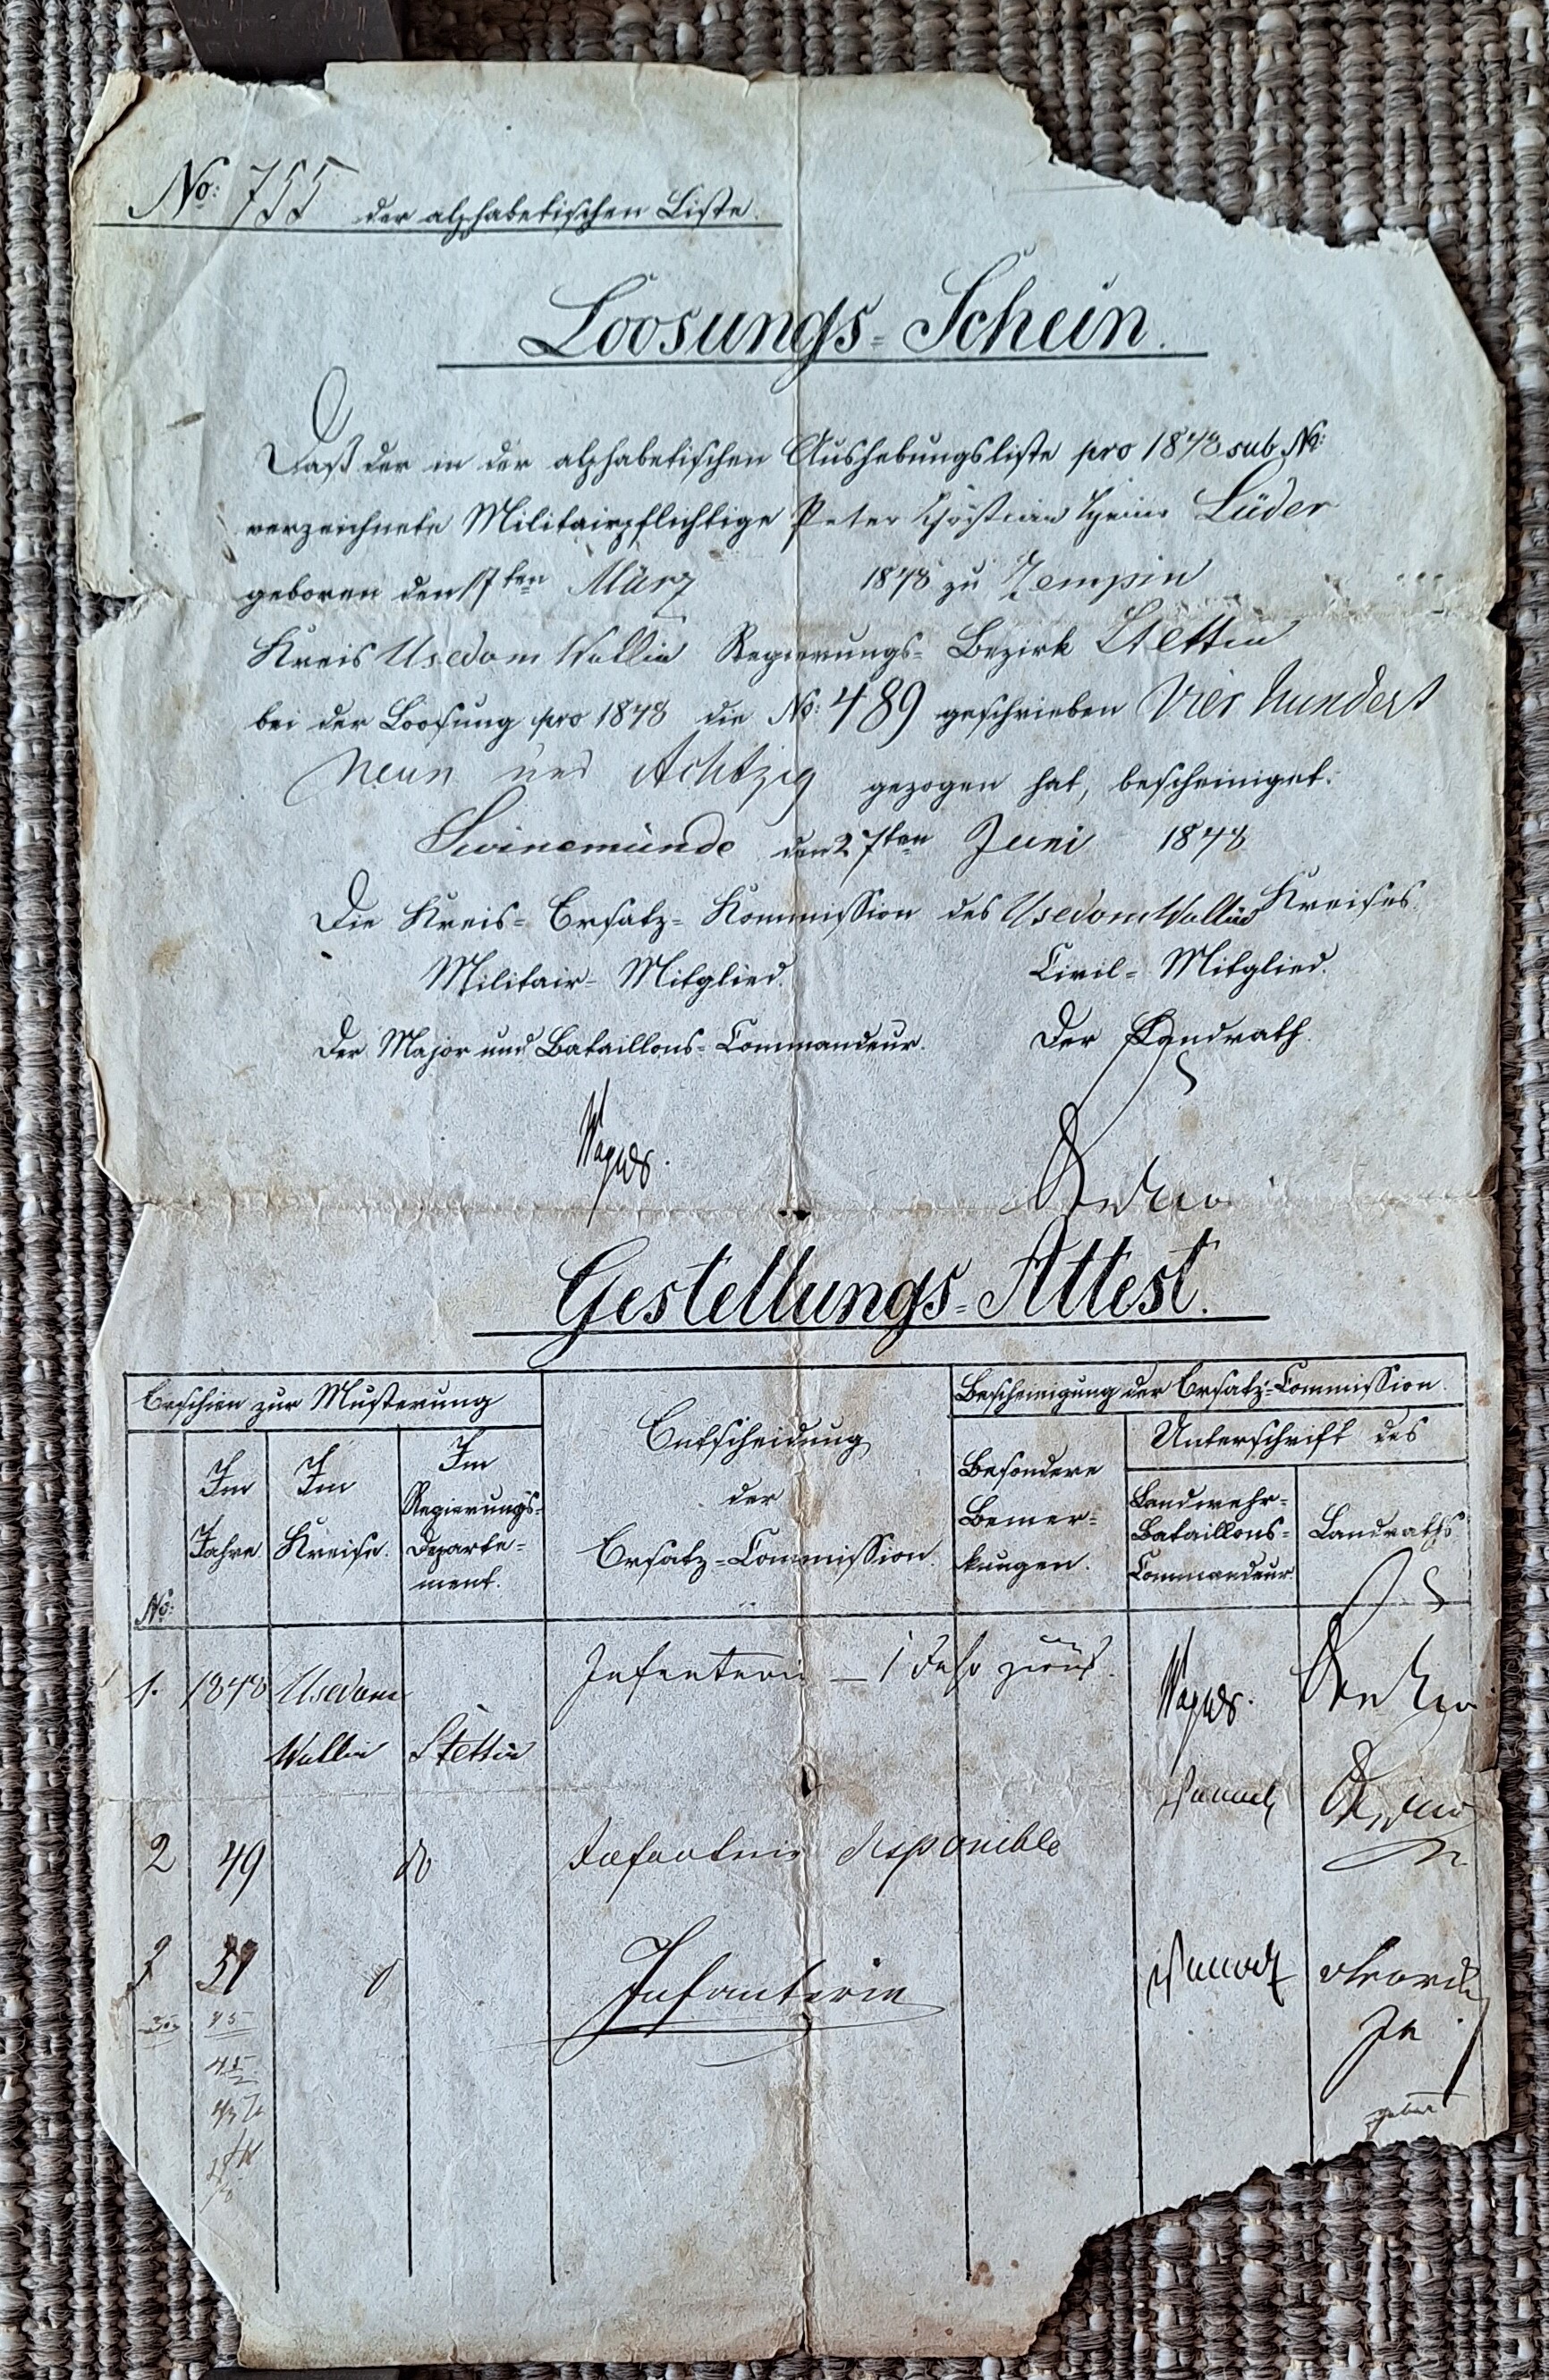 No: 755 der alphabetischen Liste.
Loosungs-Schein.
Daß der in der alphabetischen Aushebungsliste pro 1848 sub No:
verzeichnete Militairpflichtige Peter Lüder
geboren den 17ten März 18 zu Zempin
Kreis Usedom Wollin Regierungs-Bezirk Stettin
bei der Loosung pro 1848 die No: 489 geschrieben Vier hundert
Neun und Achtzig gezogen hat, bescheiniget.
Swinemünde den 27ten Juni 1848
Die Kreis-Ersatz-Kommission des Usedom Wollin Kreises
Militair-Mitglied. Civil-Mitglied.
Der Major und Bataillons-Commandeur. Der Landrath.
Gestellungs-Attest.
Erschien zur Musterung
Entscheidung der Ersatz-Commission.
Bescheinigung der Ersatz-Commission
No:
Im Jahre
Im Kreise.
Im Regierungs-Departe-ment.
Besondere Bemer-kungen.
Unterschrift des
Landwehr-Bataillons-Commandeur.
Landraths
1. 1848 Usedom Infanterie – 1 Jahr zurück.
Wollin Stettin
2 49 do Infanterie disponible
3 51 Infanterie